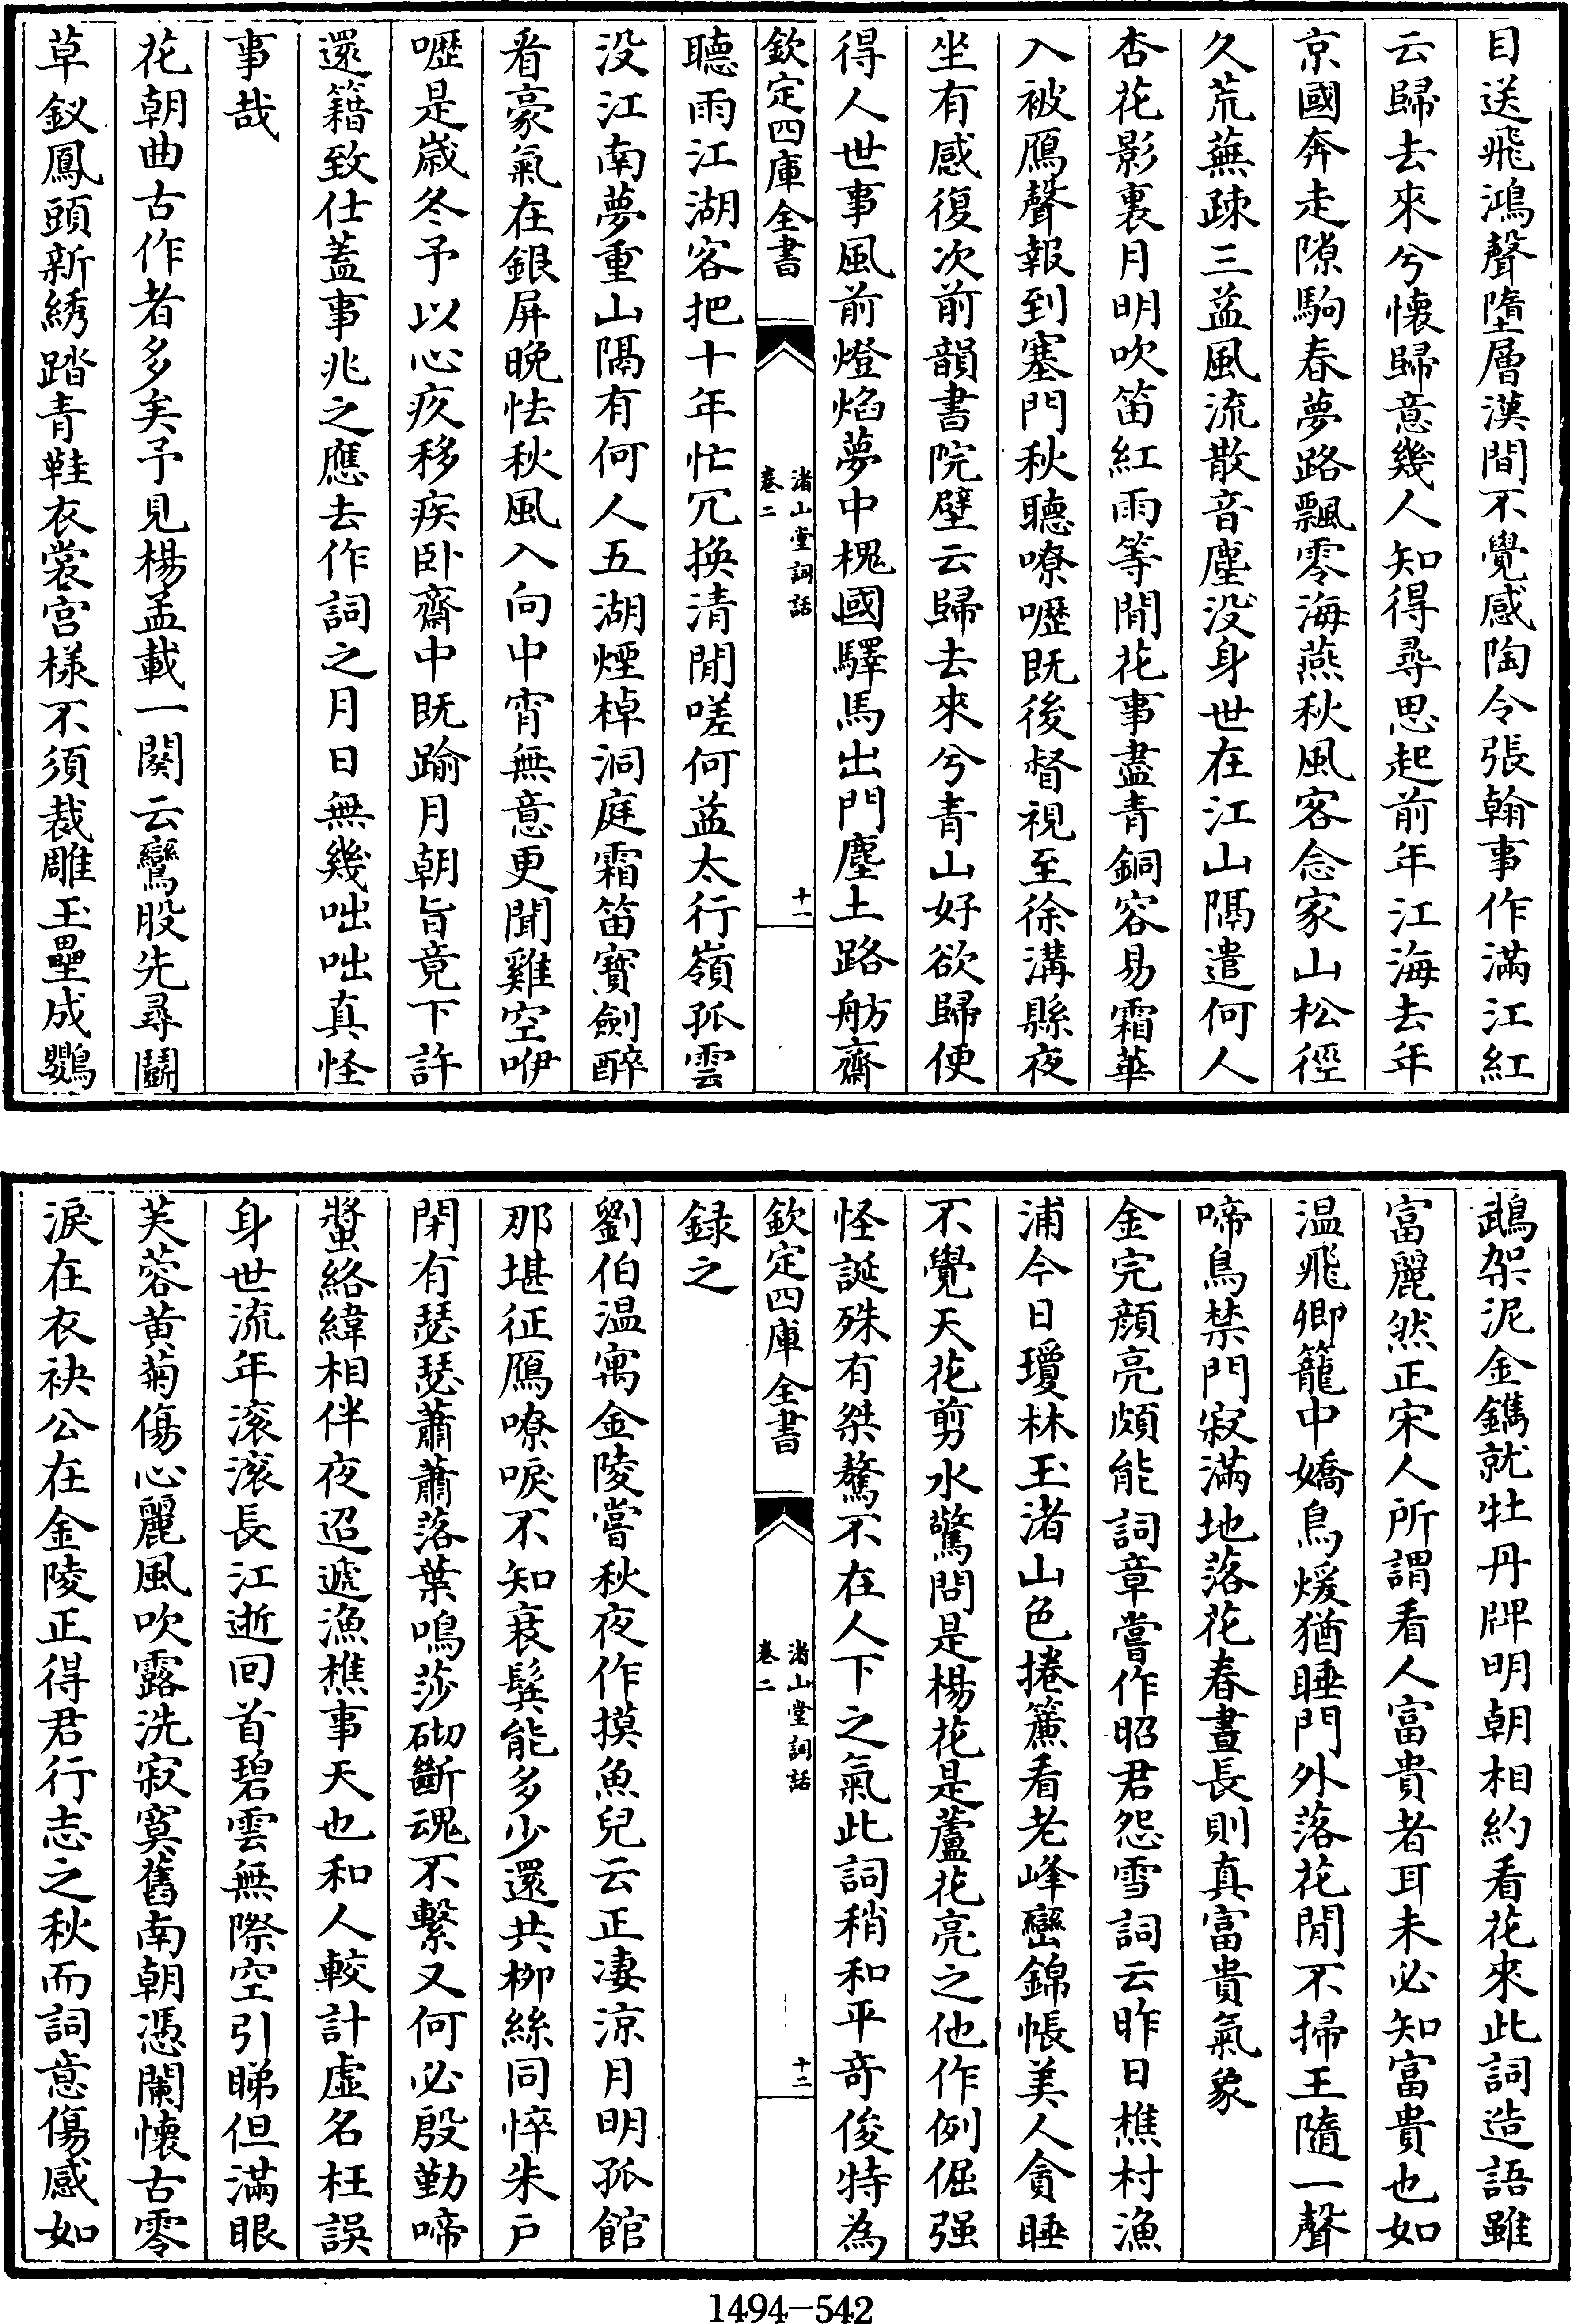 目送飛鴻聲墮層漢間不覺感陶令張翰事作滿江紅
云歸去來兮懷歸意幾人知得尋思起前年江海去年
京國奔走隙駒春夢路飄零海燕秋風客念家山松徑
久荒蕪疎三益風流散音塵没身世在江山隔遣何人
杏花影裏月明吹笛紅雨等閒花事盡青銅容易霜華
入被鴈聲報到塞門秋聽嘹嚦既後督視至徐溝縣夜
坐有感復次前韻書院壁云歸去來兮青山好欲歸便
得人世事風前燈焰夢中槐國驛馬出門塵土路舫齋
欽定四庫全書
渚山堂詞話
卷二
十一
聽雨江湖客把十年忙冗換清閒嗟何益太行嶺孤雲
没江南夢重山隔有何人五湖煙棹洞庭霜笛寳劍醉
看豪氣在銀屏晚怯秋風入向中宵無意更聞雞空咿
嚦是嵗冬予以心疚移疾卧齋中既踰月朝旨竟下許
還籍致仕蓋事兆之應去作詞之月日無幾咄咄真怪
事哉
花朝曲古作者多矣予見楊孟載一闋云鸞股先尋鬭
草釵鳳頭新綉踏青鞋衣裳宫樣不須裁雕玉壘成鸚
鵡架泥金鐫就牡丹牌明朝相約看花來此詞造語雖
富麗然正宋人所謂看人富貴者耳未必知富貴也如
温飛卿籠中嬌鳥煖猶睡門外落花閒不掃王隨一聲
啼鳥禁門寂滿地落花春晝長則真富貴氣象
金完顔亮頗能詞章嘗作昭君怨雪詞云昨日樵村漁
浦今日瓊林玉渚山色捲簾看老峰巒錦帳美人貪睡
不覺天花剪水驚問是楊花是蘆花亮之他作例倔强
怪誕殊有桀驁不在人下之氣此詞稍和平奇俊特為
欽定四庫全書
渚山堂詞話
卷二
十二
録之
劉伯温寓金陵嘗秋夜作摸魚兒云正凄涼月明孤館
那堪征鴈嘹唳不知衰鬂能多少還共栁絲同悴朱户
閉有瑟瑟蕭蕭落葉鳴莎砌斷魂不繫又何必殷勤啼
螿絡緯相伴夜迢遞漁樵事天也和人較計虚名枉誤
身世流年滚滚長江逝回首碧雲無際空引睇但滿眼
芙蓉黄菊傷心麗風吹露洗寂寞舊南朝憑闌懷古零
淚在衣袂公在金陵正得君行志之秋而詞意傷感如
1494—542